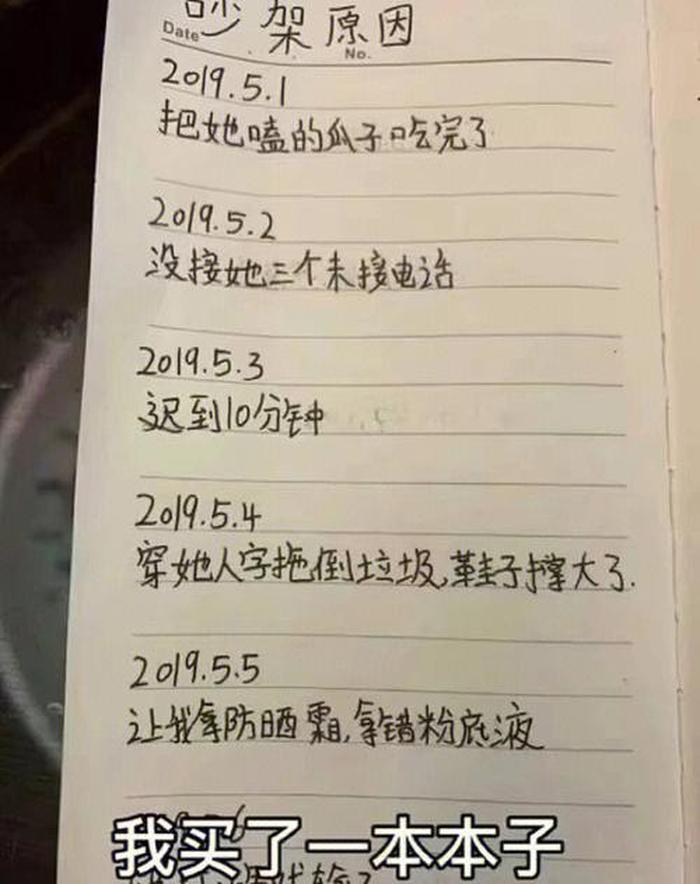 吵架原因
Date
No.
2019.5.1
把她嗑的瓜子吃完了
2019.5.2
没接她三个未接电话
2019.5.3
迟到10分钟
2019.5.4
穿她人字拖倒垃圾,鞋子撑大了.
2019.5.5
让我拿防晒霜,拿错粉底液
我买了一本本子